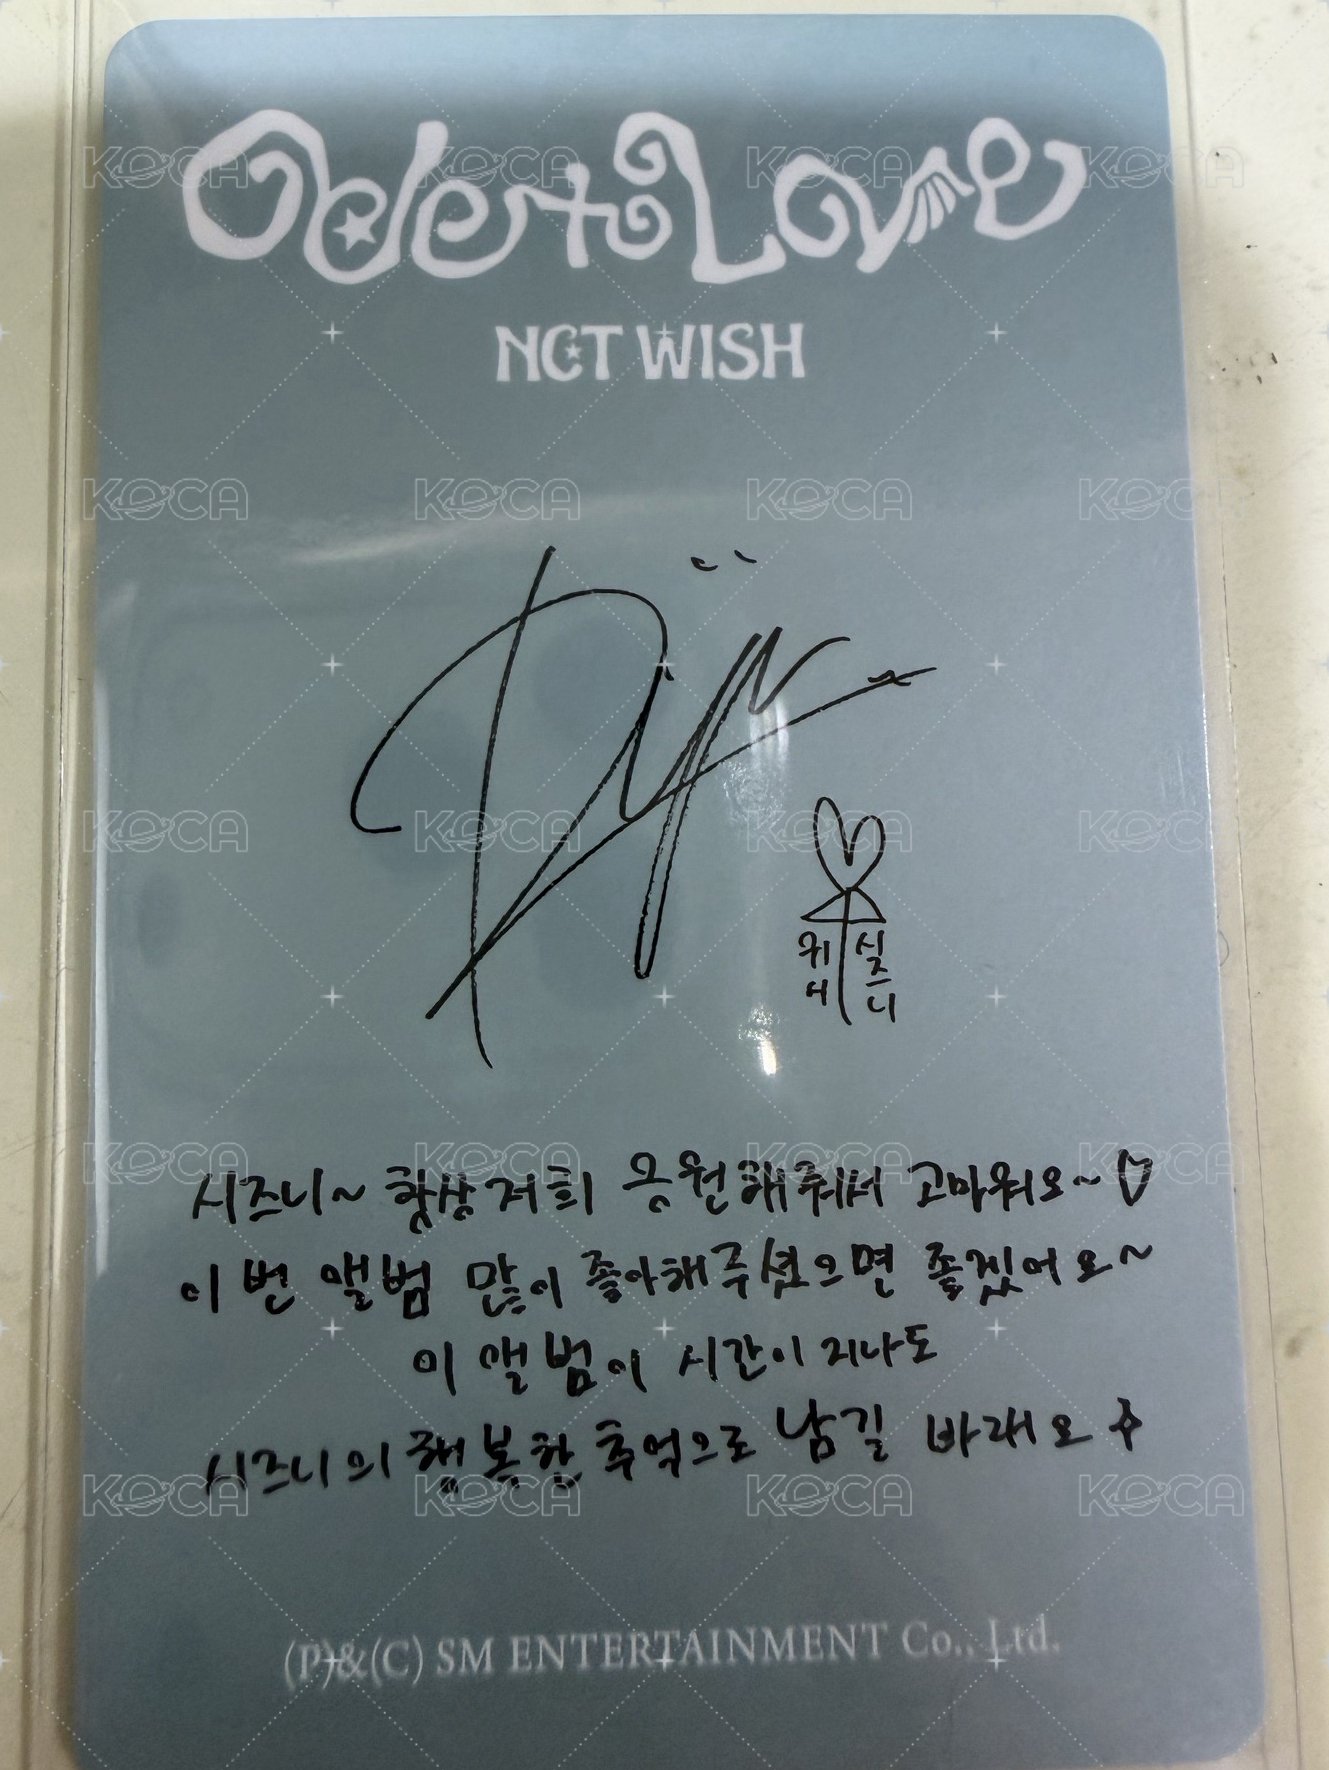 Ode to Love
NCT WISH
시즈니~ 항상 저희 응원해줘서 고마워요~♡
이번 앨범 많이 좋아해주셨으면 좋겠어요~
이 앨범이 시간이 지나도
시즈니의 행복한 추억으로 남길 바래요
(P)&(C) SM ENTERTAINMENT Co., Ltd.
KOCA